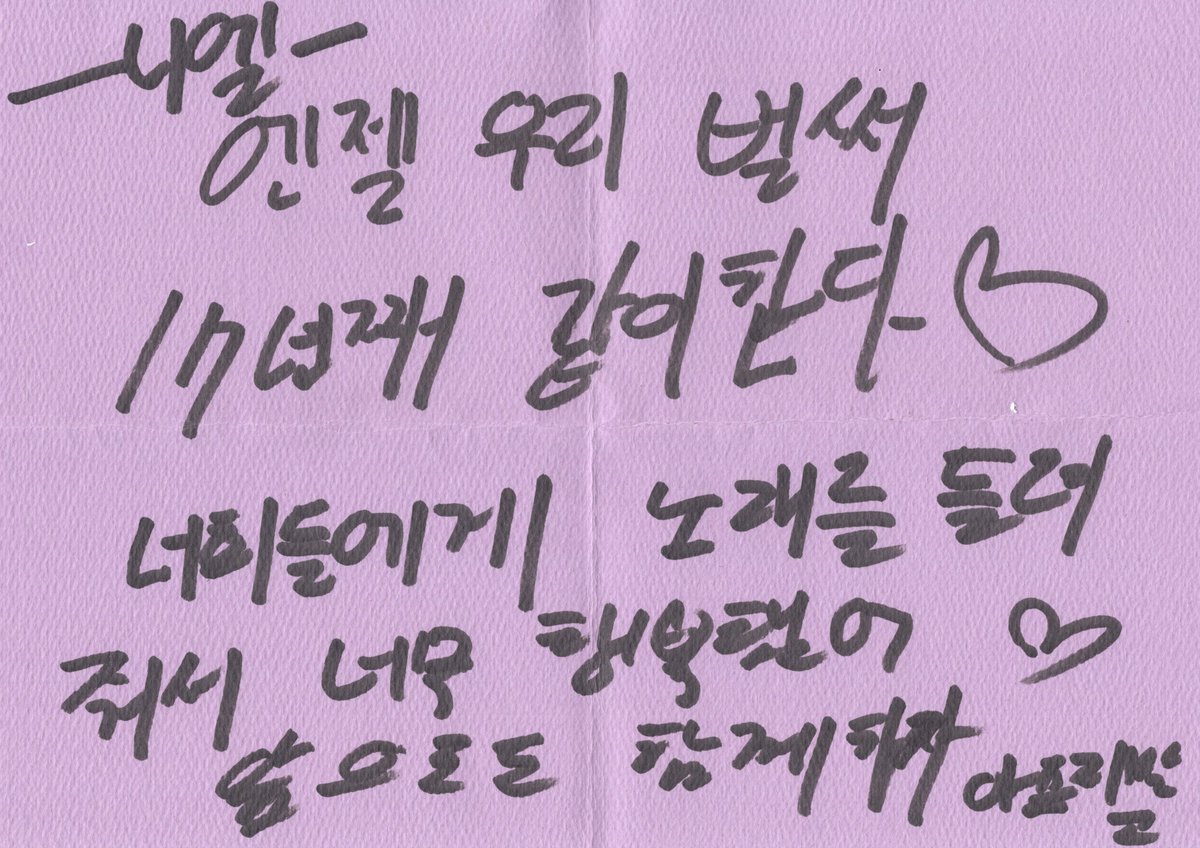 -니엘-
엔젤 우리 벌써
17년째 같이한다 ♡
너희들에게 노래를 들려
줘서 너무 행복했어 ♡
앞으로도 함께하자